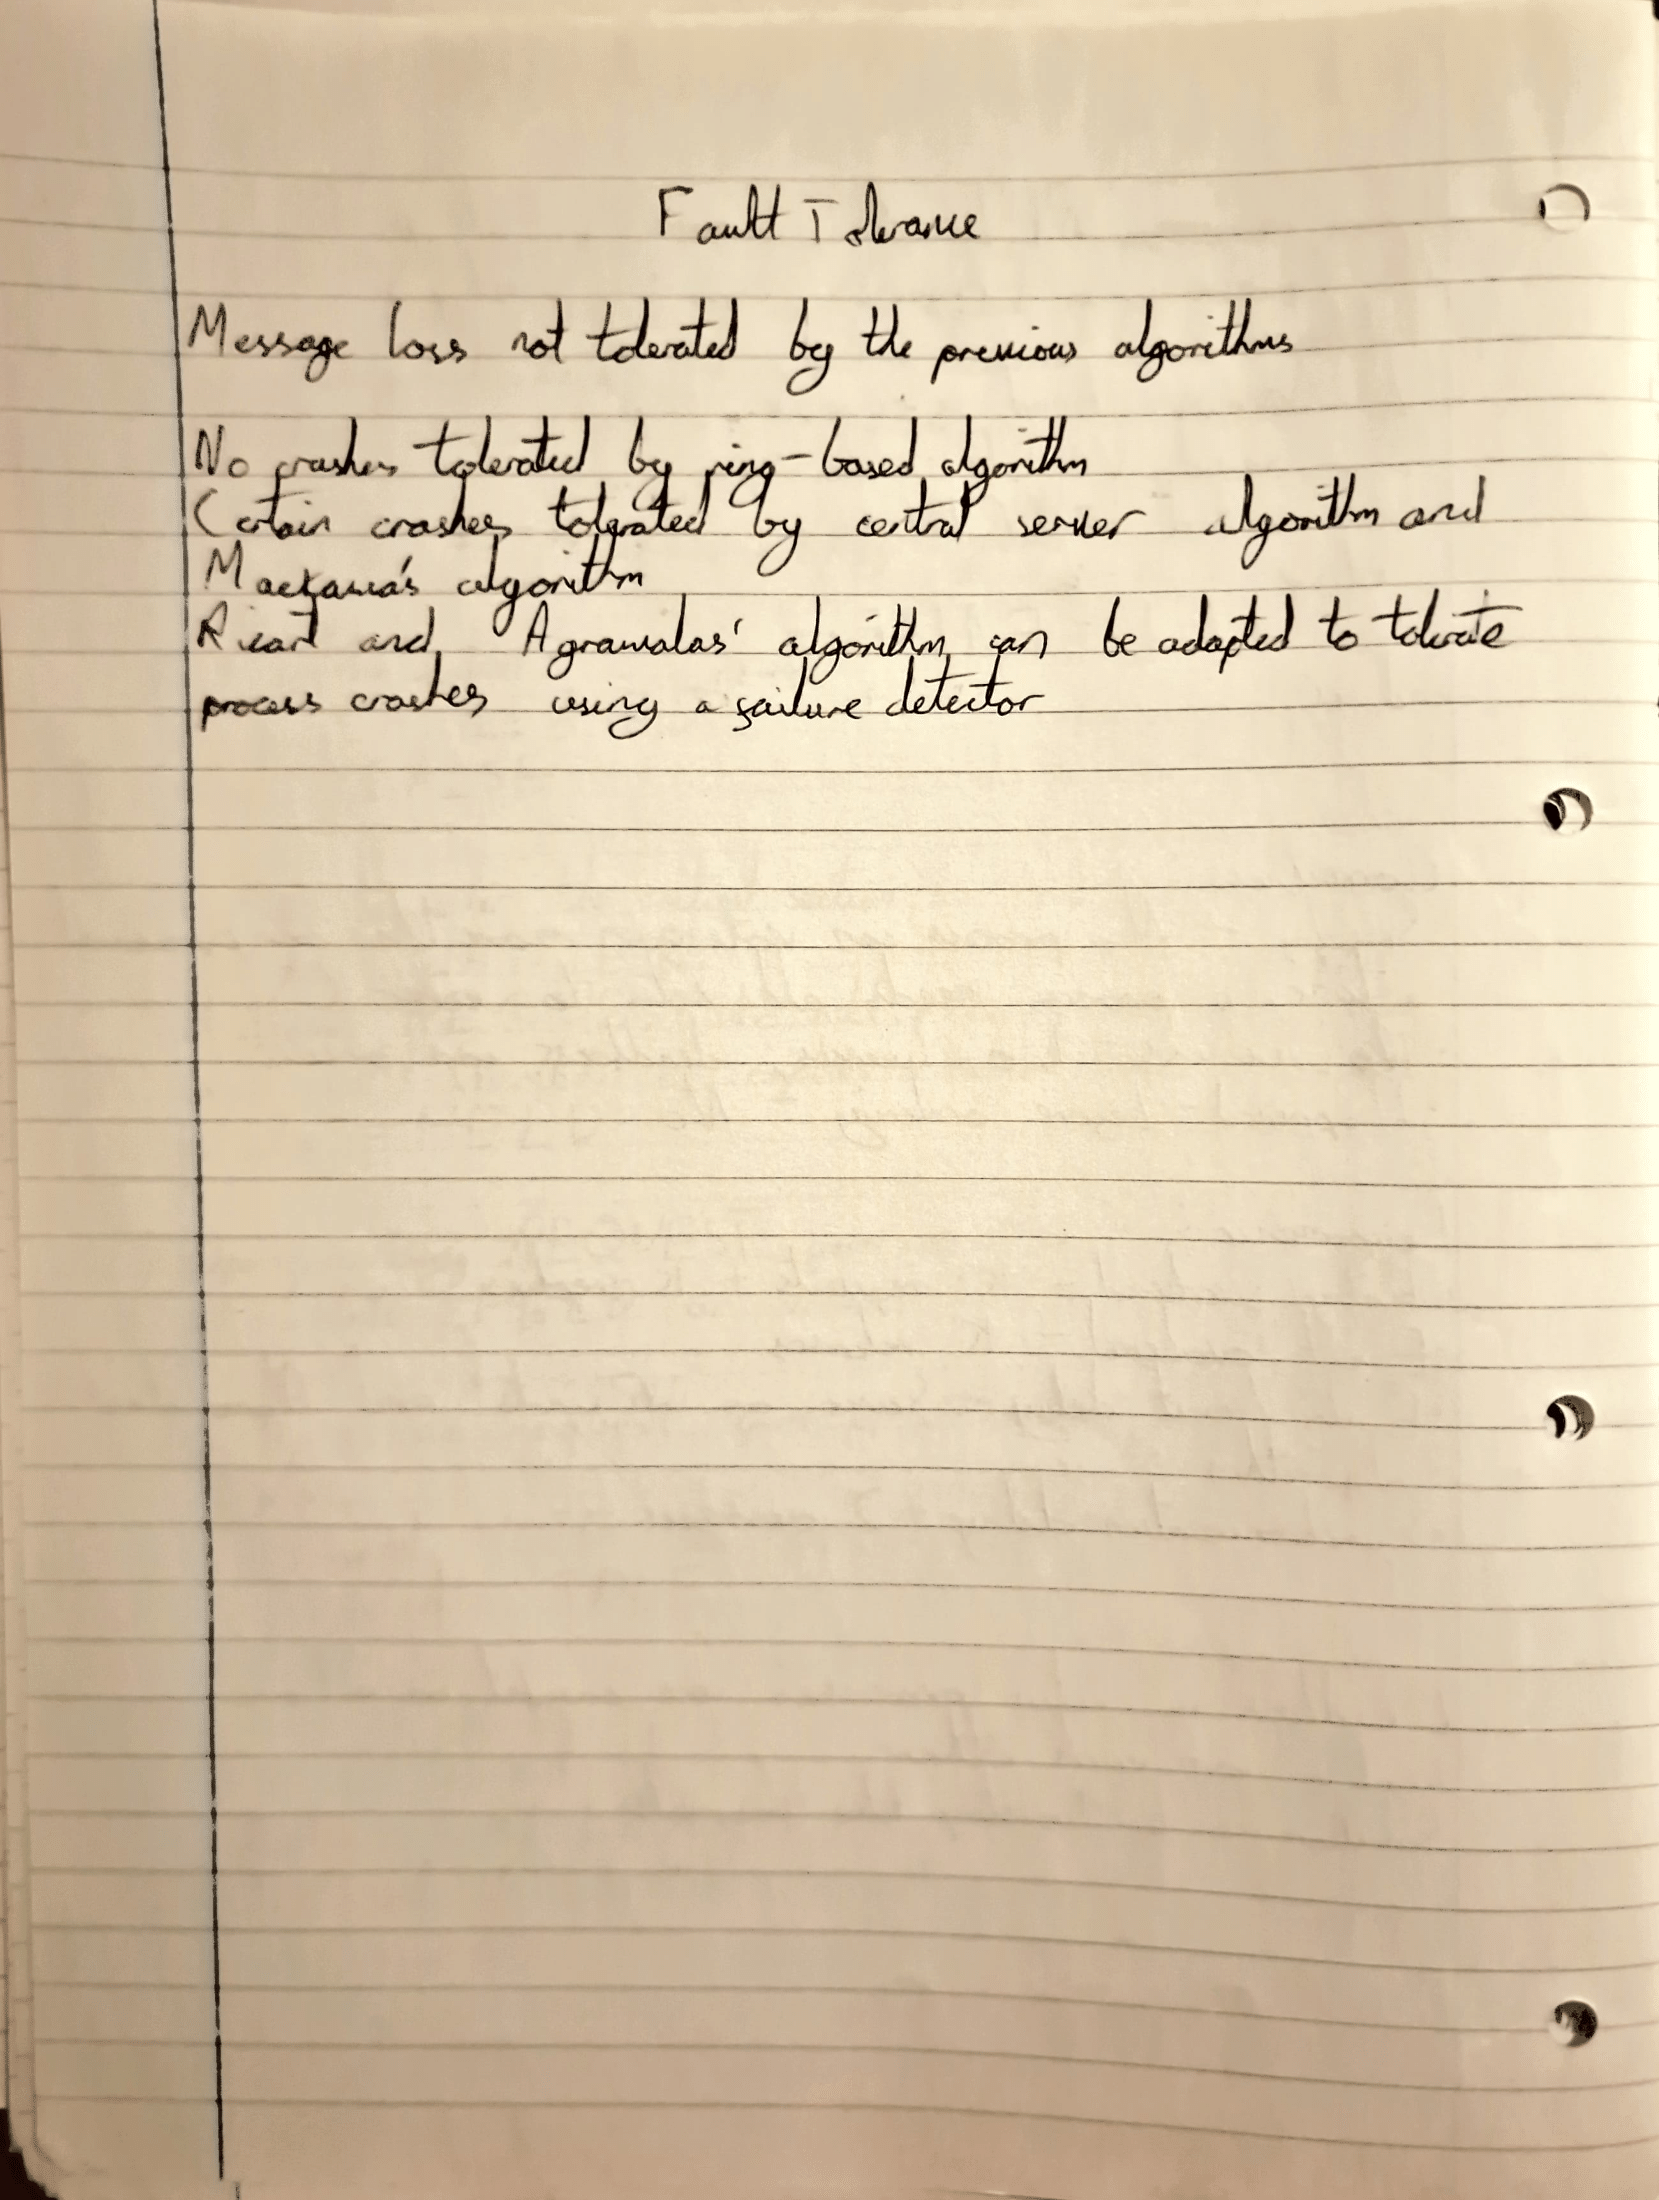 Fault Tolerance
Message loss not tolerated by the previous algorithms
No crashes tolerated by ring-based algorithm
Certain crashes tolerated by central server algorithm and
algorithm
Ricart and Agrawalas' algorithm can be adapted to tolerate
process crashes using a failure detector